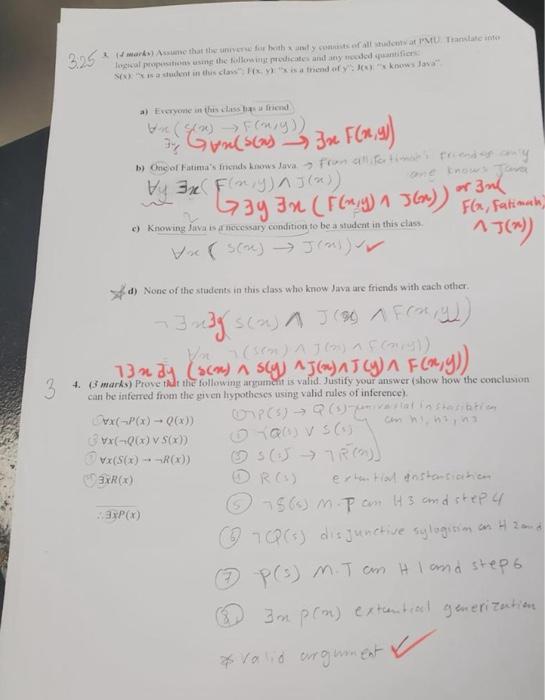 3.25
3. (4 marks) Assume that the universe for both x and y consists of all students at PMU. Translate into
logical propositions using the following predicates and any needed quantifiers:
S(x): "x is a student in this class"; F(x, y): "x is a friend of y"; J(x): "x knows Java".
a) Everyone in this class has a friend
∀x(S(x) → F(x,y))
∃y ↳ ∀x(S(x) → ∃x F(x,y)
b) One of Fatima's friends knows Java → From all Fatima's friends only
one knows Java
∀y ∃x(F(x,y) ∧ J(x))
↳ ∃y ∃x (F(x,y) ∧ J(x)) or ∃x(
F(x, Fatimah)
∧ J(x))
c) Knowing Java is a necessary condition to be a student in this class.
∀x( S(x) → J(x))
d) None of the students in this class who know Java are friends with each other.
¬∃x∃y S(x) ∧ J(x) ∧ F(x,y))
∀x ¬(S(x) ∧ J(x) ∧ F(x,y))
¬∃x ∃y (S(x) ∧ S(y) ∧ J(x) ∧ J(y) ∧ F(x,y))
3
4. (3 marks) Prove that the following argument is valid. Justify your answer (show how the conclusion
can be inferred from the given hypotheses using valid rules of inference).
∀x(¬P(x) → Q(x))
∀x(¬Q(x) ∨ S(x))
∀x(S(x) → ¬R(x))
∃xR(x)
∴∃xP(x)
① ¬P(s) → Q(s) universal instasiation
on h1, h2, h3
② ¬Q(s) ∨ S(s)
③ S(s) → ¬R(x)
④ R(s) extential instanciation
⑤ ¬S(s) M.T on H3 and step 4
⑥ ¬Q(s) disjunctive sylogisim on H2 and
⑦ P(s) M.T on H1 and step 6
⑧ ∃x p(x) extential generization
* valid argument ✓